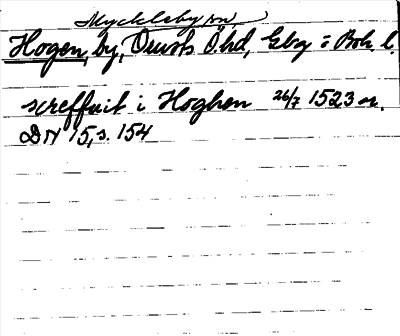 Myckleby sn
Hogen, by, Orusts V. hd, Gbg o Boh. l.
screffuit i Hoghen 26/7 1523 or.
DN 15, s. 154